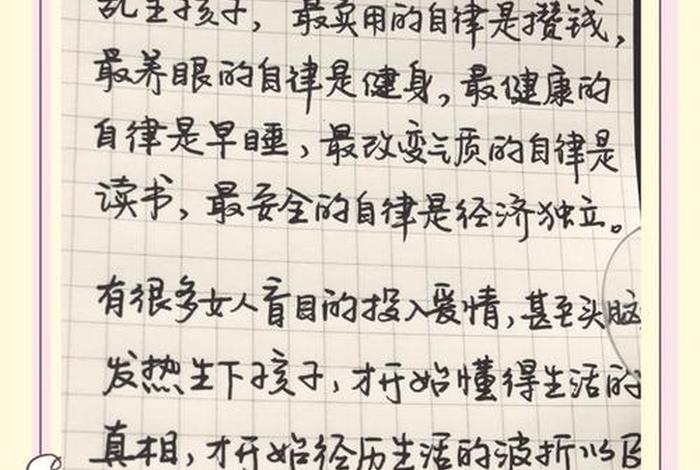 乱生孩子，最实用的自律是攒钱，
最养眼的自律是健身，最健康的
自律是早睡，最改变气质的自律是
读书，最安全的自律是经济独立。
有很多女人盲目的投入爱情，甚至头脑
发热生下孩子，才开始懂得生活的
真相，才开始经历生活的波折以及